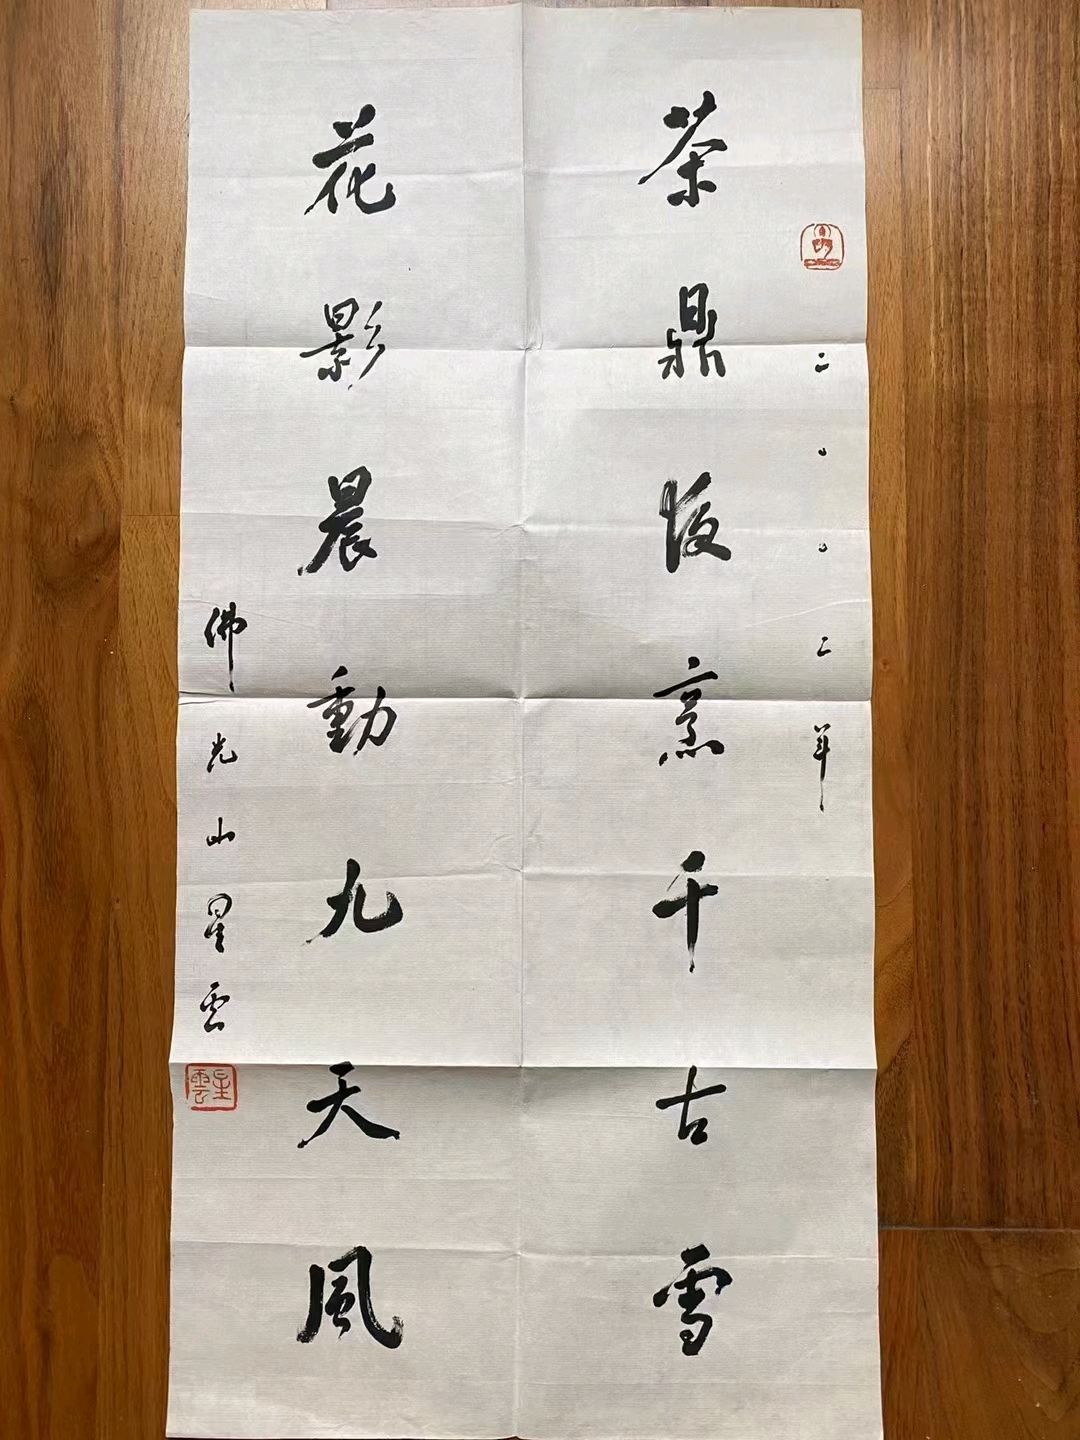 二〇〇二年
茶鼎夜烹千古雪
花影晨動九天風
佛光山星雲
星雲